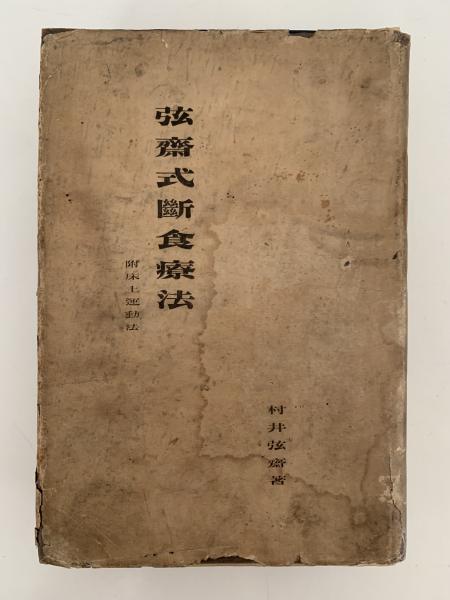 弦齋式斷食療法
附床上運動法
村井弦齋著